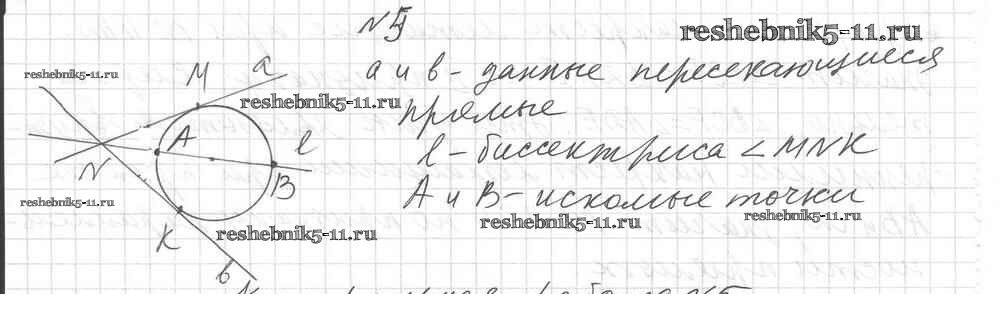 N5
reshebnik5-11.ru
reshebnik5-11.ru
M a
reshebnik5-11.ru
a и в - данные пересекающиеся
прямые
A l
l - биссектриса ∠MNK
N B
A и B - искомые точки
reshebnik5-11.ru
reshebnik5-11.ru
reshebnik5-11.ru
reshebnik5-11.ru
K
в